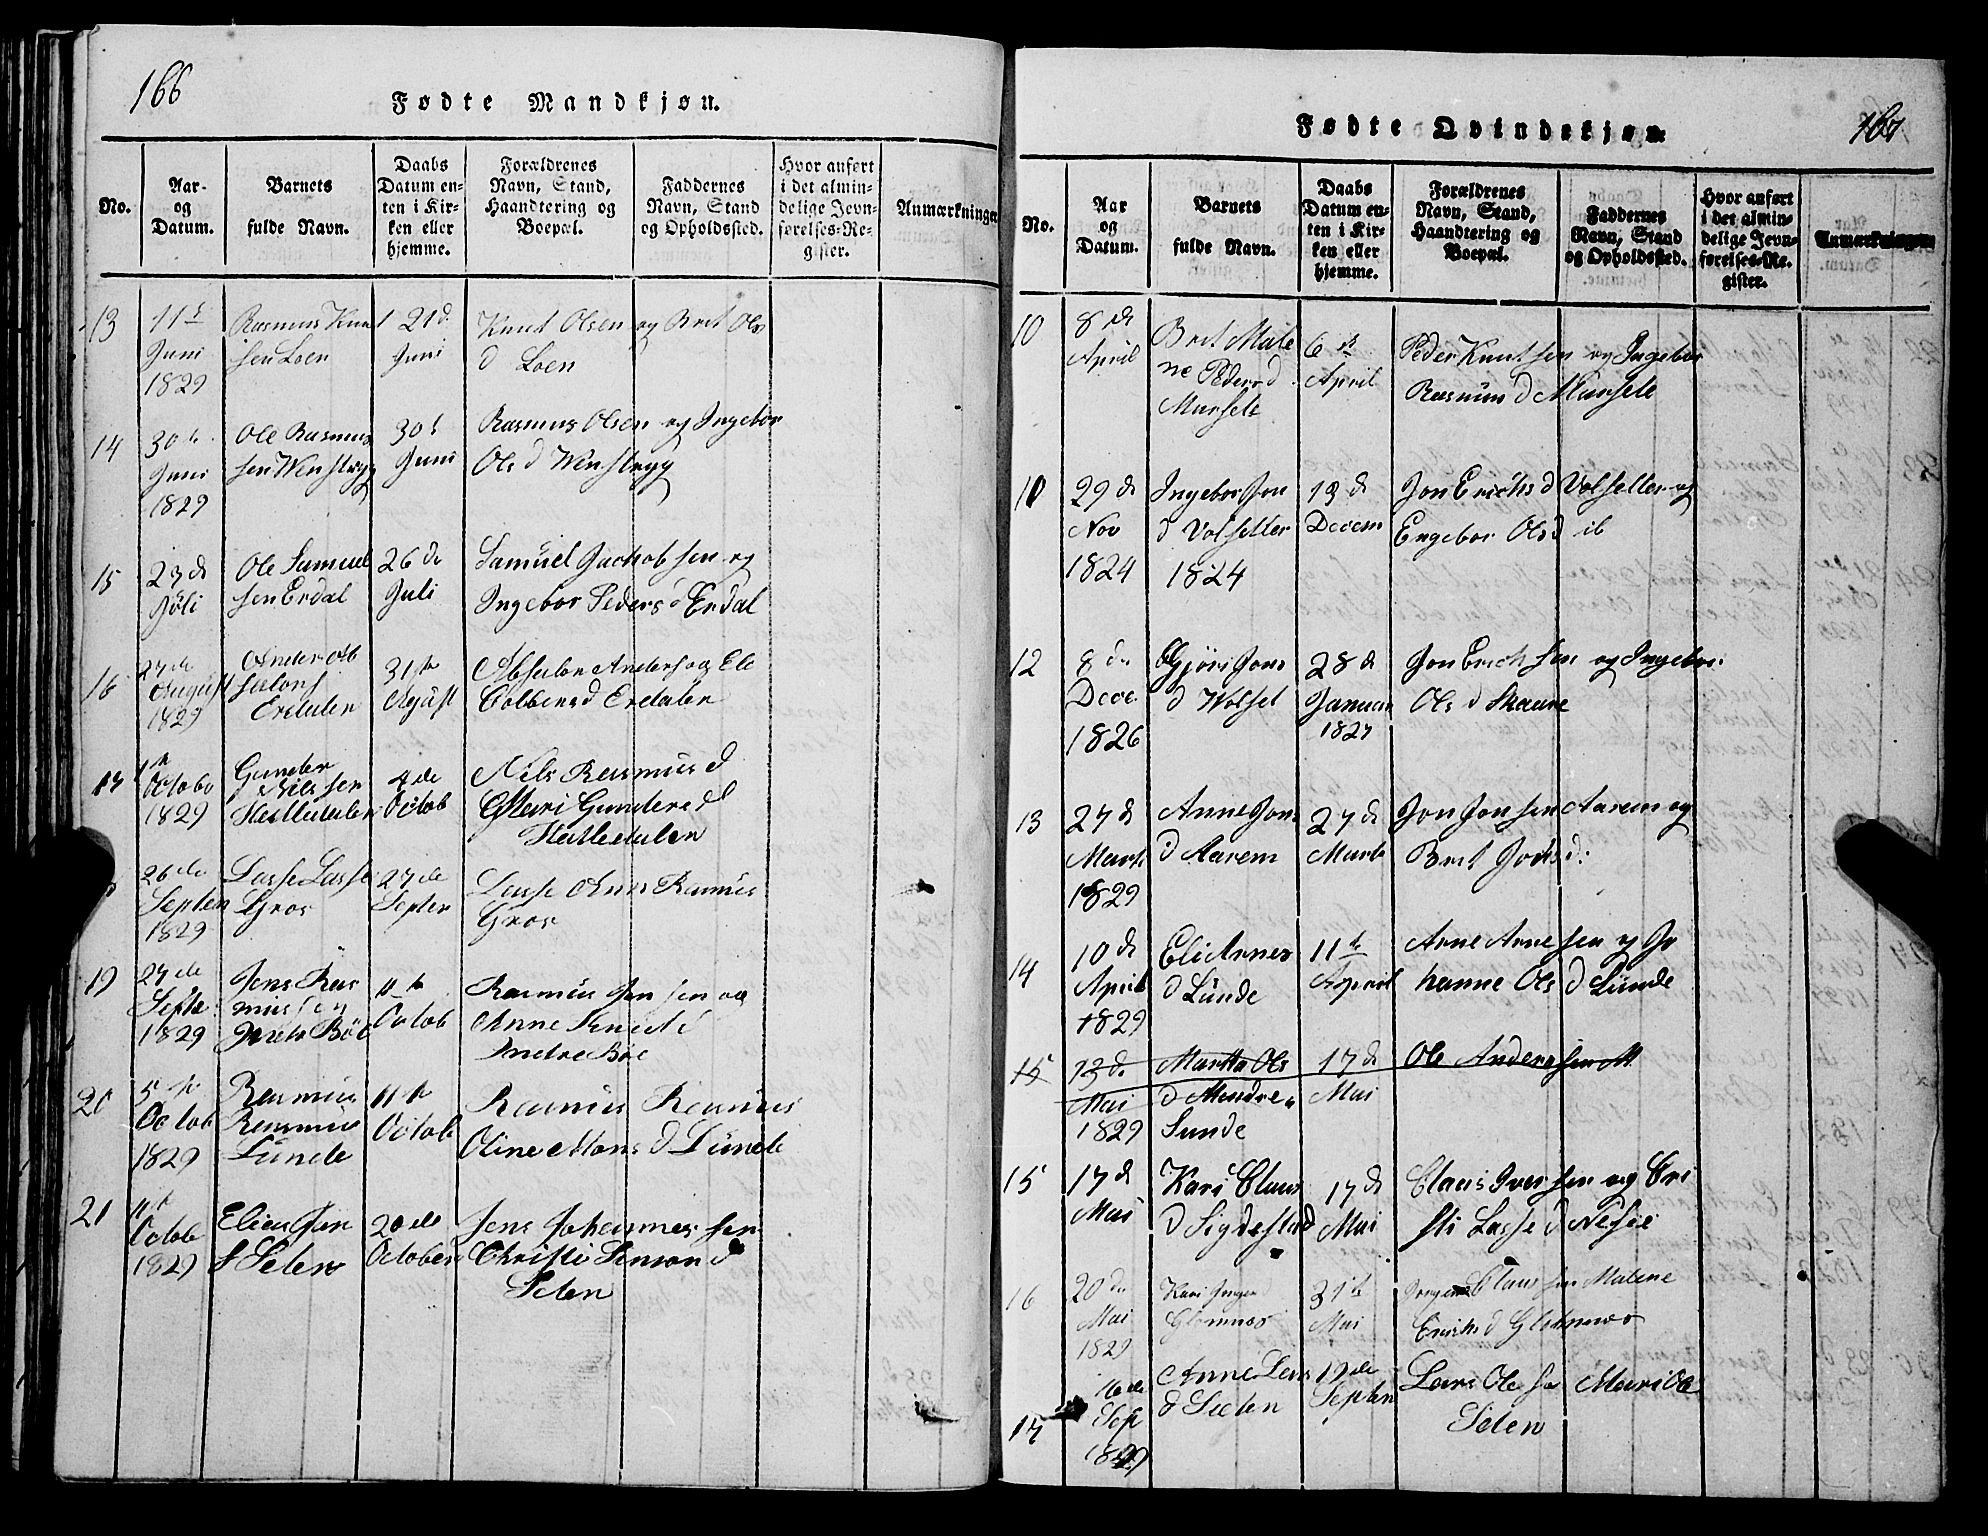 166
Fødte Mandkjøn.
No.
Aar-
og
Datum.
Barnets
fulde Navn.
Daabs
Datum en-
ten i Kir-
ken eller
hjemme.
Forældrenes
Navn, Stand,
Haandtering og
Boepæl.
Faddernes
Navn, Stand
og Opholdssted.
Hvor anført
i det almin-
delige Jevn-
førelses-Re-
gister.
Anmærkninger
13
11te
Juni
1829
Rasmus Knut
sen Loen
21d.
Juni
Knut Olsen og Brit Ols
d Loen
14
30te
Juni
1829
Ole Rasmus
sen
30t
Juni
Rasmus Olsen og Ingebor
Ols d
15
23de
Juli
Ole Samuel
sen Erdal
26de
Juli
Samuel Jachobsen og
Ingebor Peders d Erdal
16
27de
August
1829
Erdalen
31te
August
Absalon Anders og Eli
Colbens d Erdalen
17
October
1829
Gunder
Nilssen
4de
Octob
Nils Rasmus d
Gunders d
26de
Septem
1829
Lasse Lasse
Gros
27de
Septen
Lasse Rasmus
Gros
19
27de
Septe
1829
Jens Ras
mussen
Indre Böe
11te
Octob
Rasmus Jensen og
Anne
Indre Böe
20
5te
Octob
1829
Rasmus
Rasmus
Lunde
11te
Octob
Rasmus Rasmus
Oline Mons d Lunde
21
Octob
1829
Setens
20de
October
Jens Johannessen
Christi Simon d
Seten
167
Fødte Qvindekjøn
No.
Aar
og
Datum.
Barnets
fulde Navn.
Daabs
Datum en-
ten i Kir-
ken eller
hjemme.
Forældrenes
Navn, Stand,
Haandtering og
Boepæl.
Faddernes
Navn, Stand
og Opholdssted.
Hvor anført
i det almin-
delige Jevn-
førelses-Re-
gister.
Anmærkninger
10
8de
April
Brit Male
ne Peders d
6te
April
Peder Knutsen og Ingebor
Rasmus d
10
29de
Nov
1824
Ingebor Jon
d Volsetter
1824
13de
Decem
Jon Erichs d Volsetter og
Engebor Ols d ib
12
8de
Dece.
1826
Gjöri Jons
d Wolset
28d
Januar
1827
Jon Erichsen og Ingebor
Ols d Skaare
13
27d
Marts
1829
Anne Jons
d Aarem
27d
Marts
Jon Jonsen Aarem og
Brit
14
10de
April
1829
Eli Arnes
d Lunde
11te
April
Arne Arnesen og Jo
hanne Ols d Lunde
15
13de
Mai
1829
Martha Ols
d
Sunde
17de
Mai
Ole Anderssen M
15
17d
Mai
Kari Claus
d Sigdestad
17de
Mai
Claus Iversen og Cri
sti Lasse d Nesse
16
20de
Mai
1829
Kari Jørgen
Glomnes
31te
Mai
Jørgen Claussen Malene
Erichs d Glomnes
17
16de
Sep
1829
Anne Lars
d Seten
19de
Septen
Lars Olesen Mari
Seten